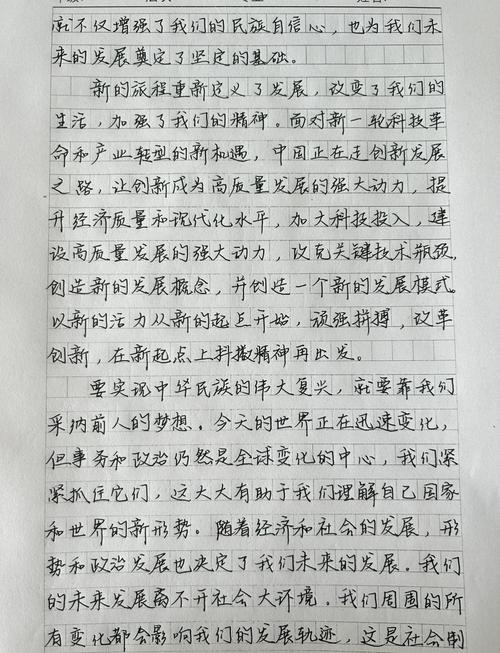 就不仅增强了我们的民族自信心，也为我们未
来的发展奠定了坚定的基础。
新的旅程重新定义了发展，改变了我们的
生活，加强了我们的精神。面对新一轮科技革
命和产业转型的新机遇，中国正在走创新发展
之路，让创新成为高质量发展的强大动力，提
升经济质量和现代化水平，加大科技投入，建
设高质量发展的强大动力，攻克关键技术瓶颈，
创造新的发展概念，并创造一个新的发展模式。
以新的活力从新的起点开始，顽强拼搏，改革
创新，在新起点上抖擞精神再出发。
要实现中华民族的伟大复兴，就要靠我们
采纳前人的梦想。今天的世界正在迅速变化，
但事务和政治仍然是全球变化的中心，我们紧
紧抓住它们，这大大有助于我们理解自己国家
和世界的新形势。随着经济和社会的发展，形
势和政治发展也决定了我们未来的发展。我们
的未来发展离不开社会大环境。我们周围的所
有变化都会影响我们的发展轨迹，这是社会制